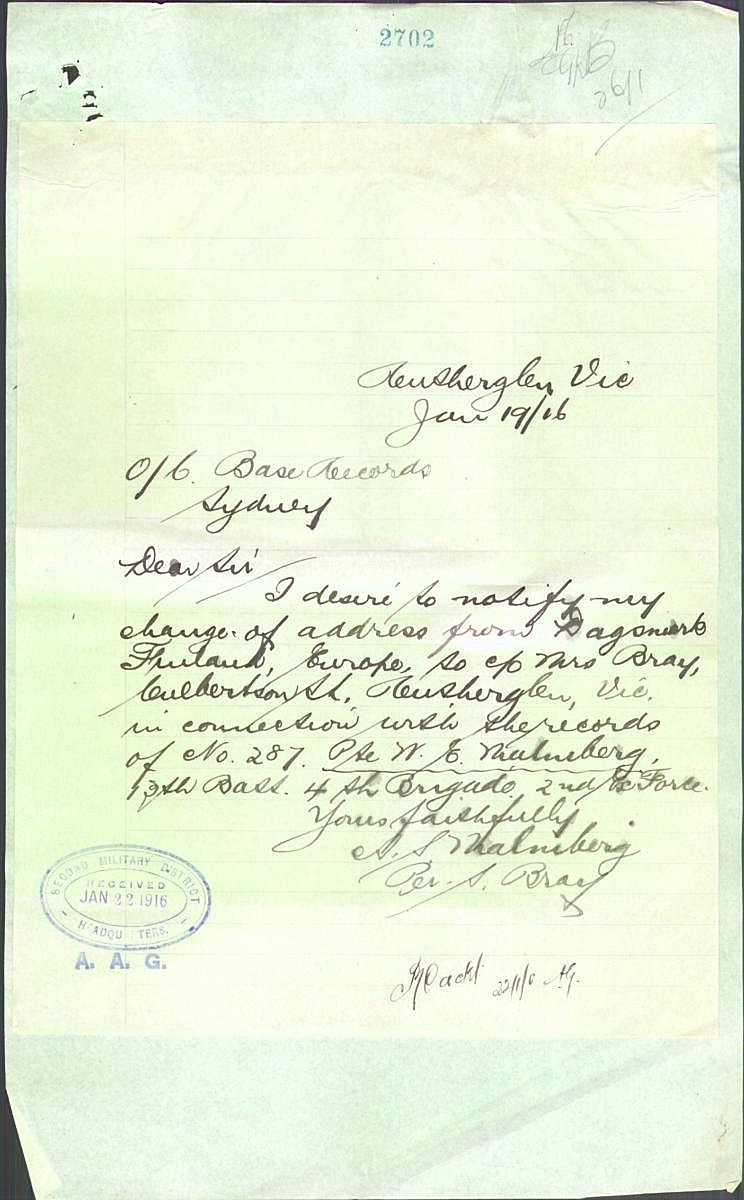 2702
26/1
Rutherglen Vic
Jan 19/16
O/C. Base Records
Sydney
Dear Sir
I desire to notify my
change of address from Dagsmark
Finland, Europe, to c/o Mrs Bray,
Culbertson St, Rutherglen, Vic.
in connection with the records
of No. 287. Pte W. E. Malmberg,
13th Batt. 4th Brigade, 2nd Force.
Yours faithfully
A. S Malmberg
Per. S. Bray
SECOND MILITARY DISTRICT
RECEIVED
JAN 22 1916
HEADQU TERS.
A. A. G.
22/1/6